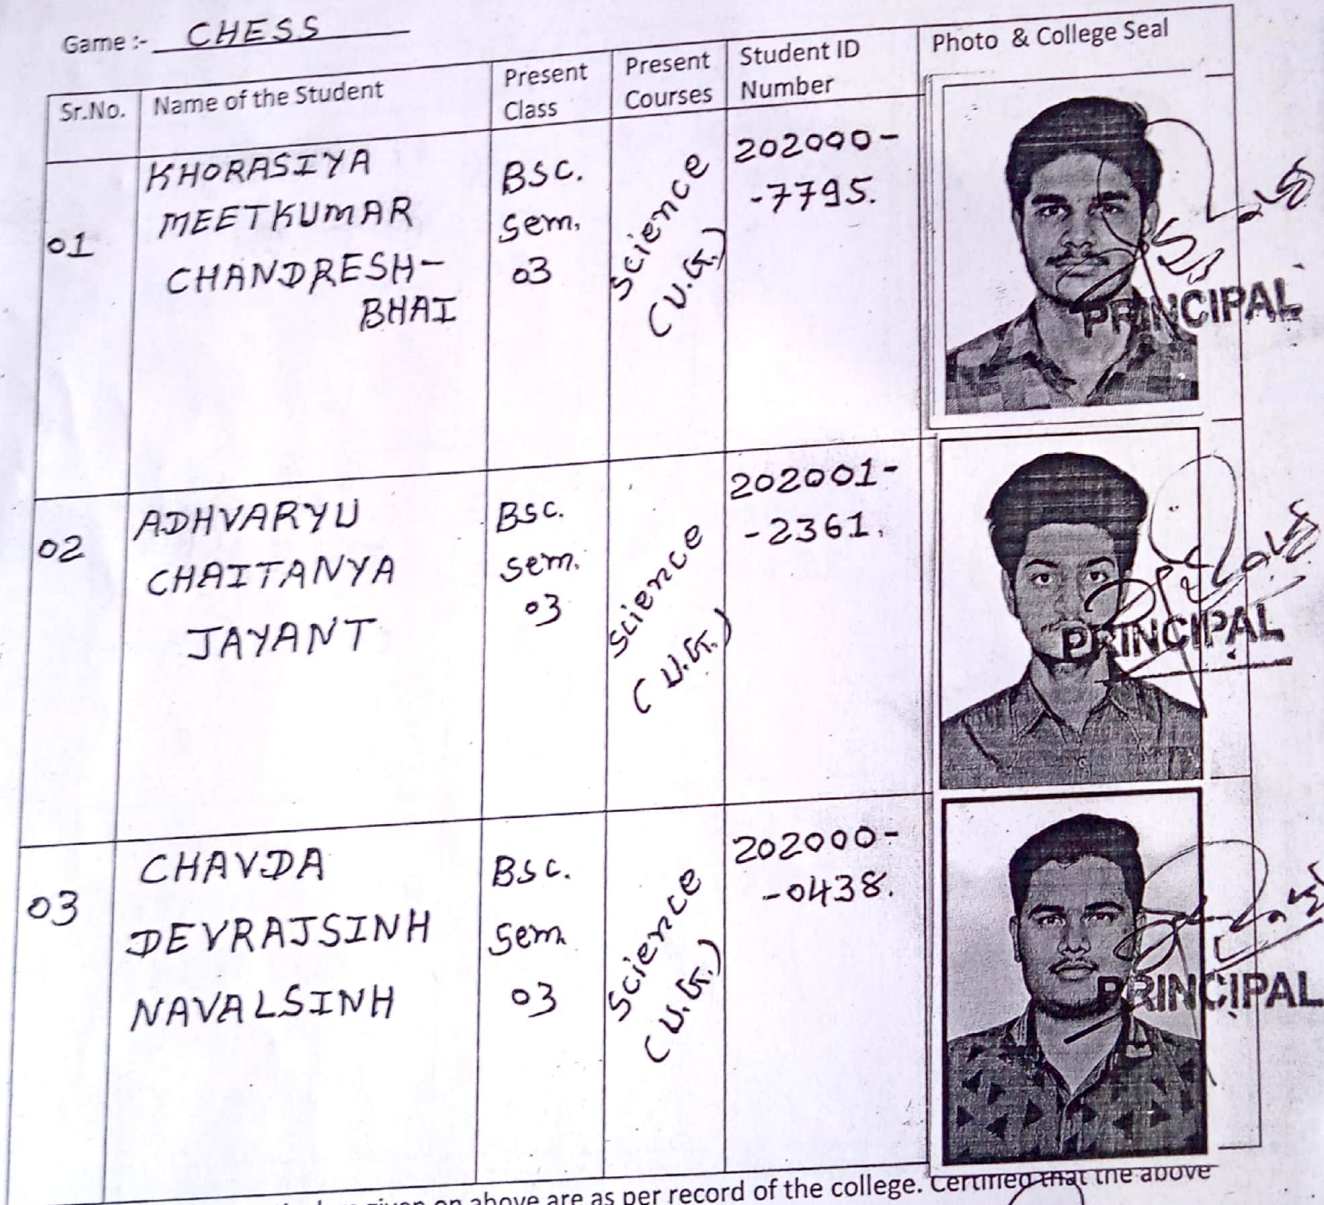 Game :- CHESS
Sr.No. Name of the Student Present Class Present Courses Student ID Number Photo & College Seal
01 KHORASIYA MEETKUMAR CHANDRESH- BHAI BSC. sem. 03 Science (U.G.) 202000- -7795. PRINCIPAL
02 ADHVARYU CHAITANYA JAYANT BSC. sem. 03 Science (U.G.) 202001- -2361. PRINCIPAL
03 CHAVDA DEVRAJSINH NAVALSINH BSC. sem. 03 Science (U.G.) 202000- -0438. PRINCIPAL
given on above are as per record of the college. Certified that the above